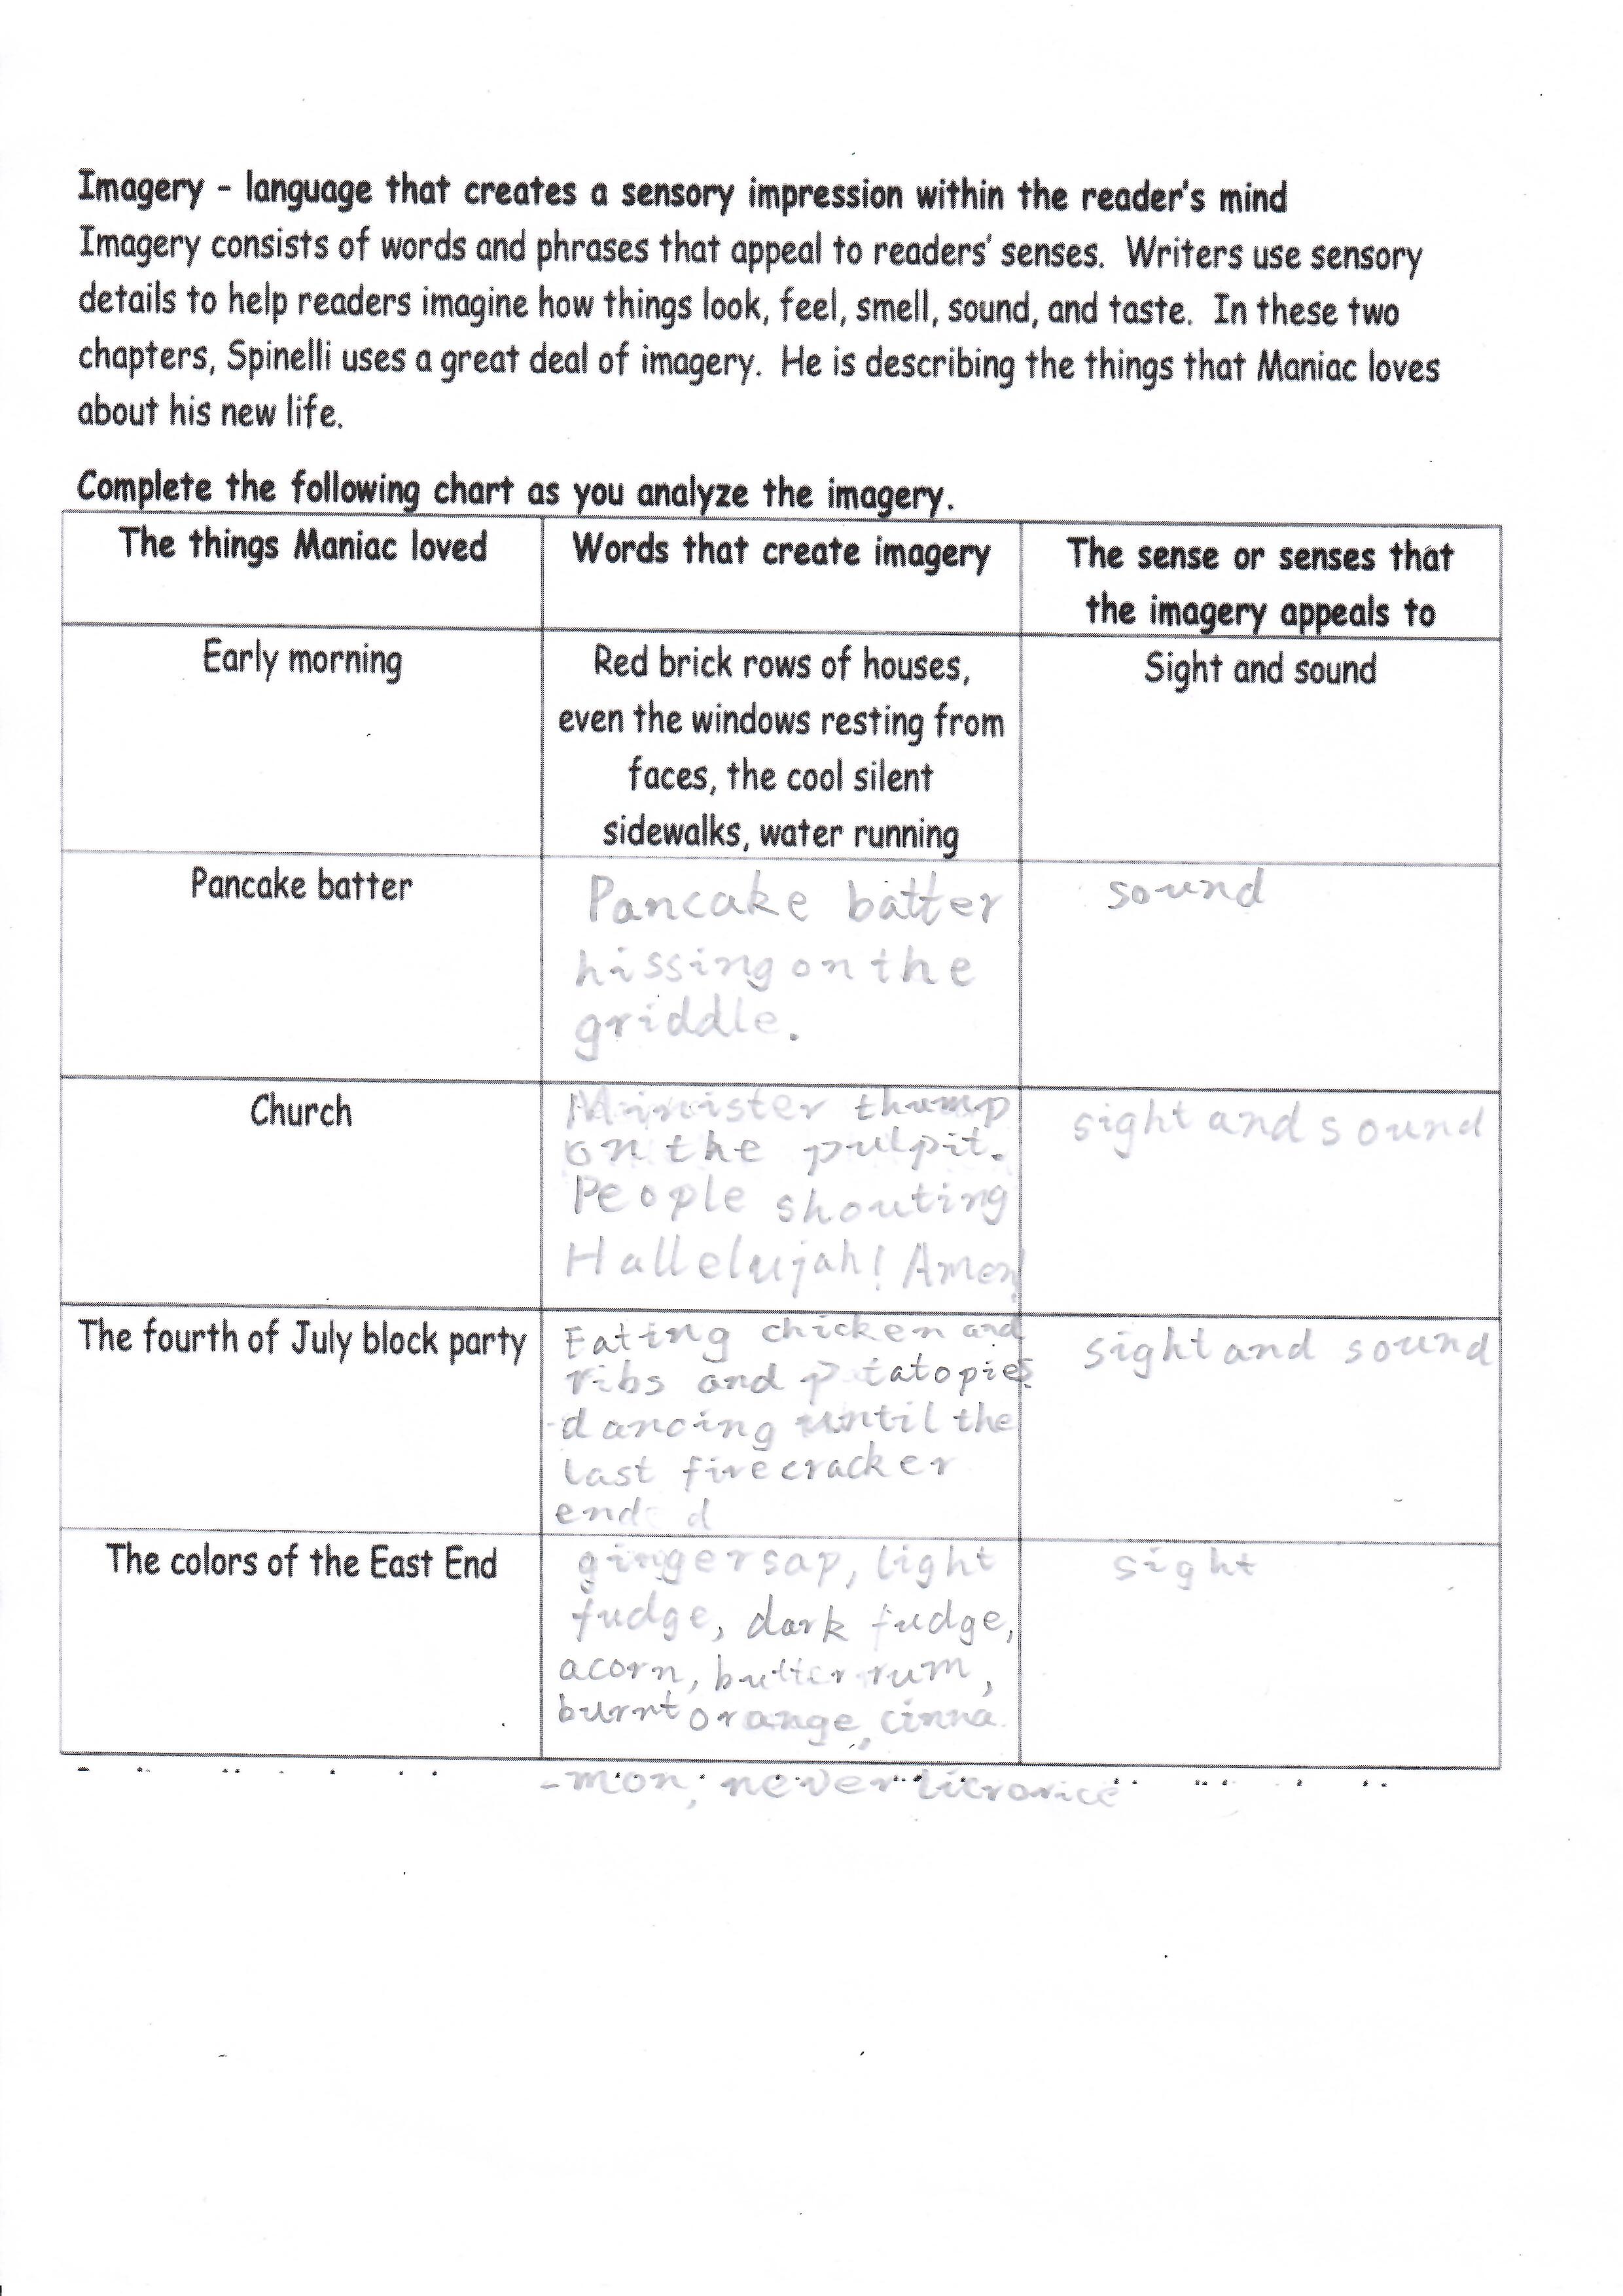 Imagery - language that creates a sensory impression within the reader's mind
Imagery consists of words and phrases that appeal to readers' senses. Writers use sensory
details to help readers imagine how things look, feel, smell, sound, and taste. In these two
chapters, Spinelli uses a great deal of imagery. He is describing the things that Maniac loves
about his new life.
Complete the following chart as you analyze the imagery.
The things Maniac loved
Words that create imagery
The sense or senses that
the imagery appeals to
Early morning
Red brick rows of houses,
even the windows resting from
faces, the cool silent
sidewalks, water running
Sight and sound
Pancake batter
Pancake batter
hissing on the
griddle.
sound
Church
Minister thump
on the pulpit.
People shouting
Hallelujah! Amen!
sight and sound
The fourth of July block party
Eating chicken and
ribs and potatopies.
-dancing until the
last firecracker
ended
sight and sound
The colors of the East End
gingersap, light
fudge, dark fudge,
acorn, butter rum,
burnt orange, cinna
-mon, never licrorice
sight